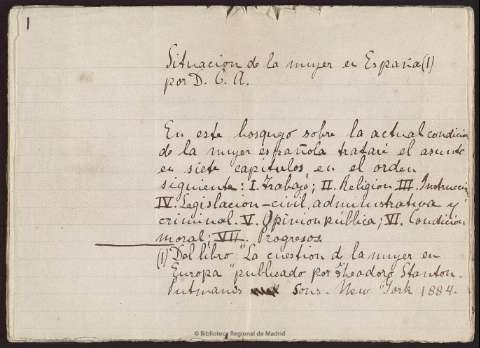 1
Situacion de la mujer en España (1)
por D. C. A.
En este bosquejo sobre la actual condicion
de la mujer española trataré el asunto
en siete capitulos, en el orden
siguiente: I. Trabajo; II. Religion III. Instruccion
IV. Legislacion - civil, administrativa y
criminal. V. Opinion publica; VI. Condicion
moral; VII. Progresos
(1) Del libro "La cuestion de la mujer en
Europa" publicado por Theodoro Stanton.
Putmanis Sons. New York 1884.
© Biblioteca Regional de Madrid